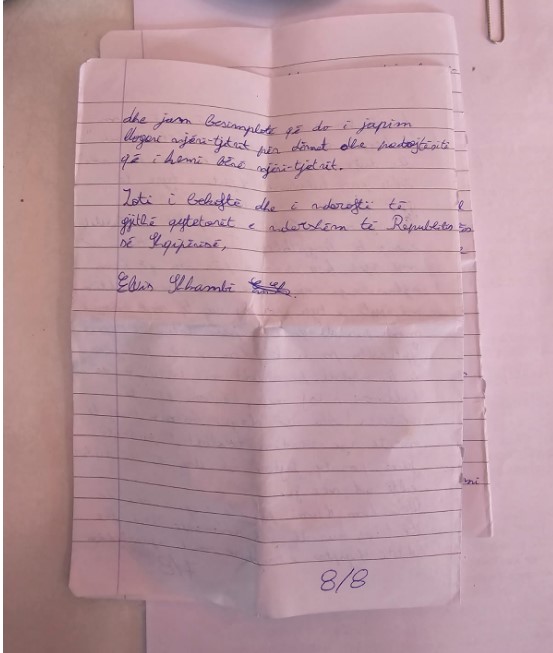 dhe jam besimplotë që do i japim
llogari njëri-tjetrit për dëmet dhe padrejtësitë
që i kemi bërë njëri-tjetrit.
Zoti i bekoftë dhe i nderoftë të
gjithë qytetarët e ndershëm të Republikës
së Shqipërisë,
Elvis
8/8